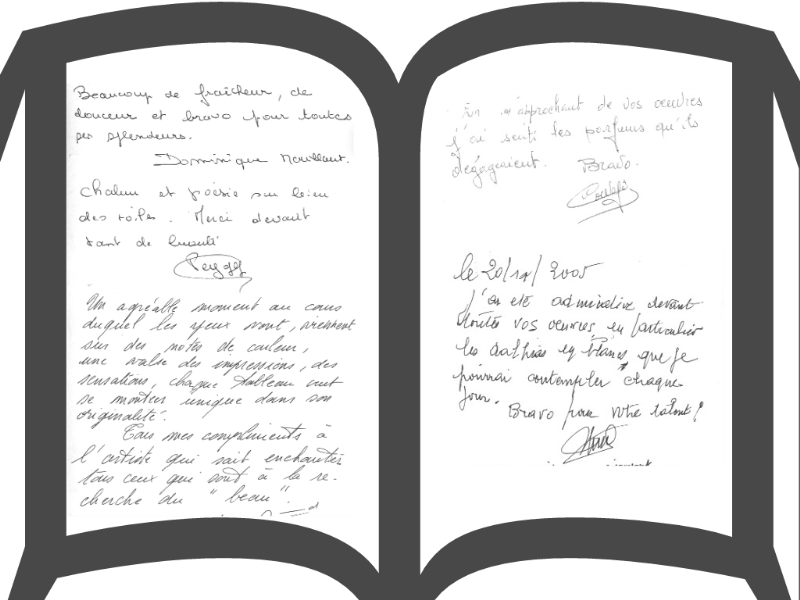 Beaucoup de fraîcheur, de
douceur et bravo pour toutes
ses splendeurs.
Dominique
Chaleur et poésie sur
des toiles. Merci devant
tant de beauté
Peyggy
Un agréable moment au cours
duquel les yeux vont, viennent
sur des notes de couleur,
une valse des impressions, des
sensations, chaque tableau veut
se montrer unique dans son
originalité.
Tous mes compliments à
l'artiste qui sait enchanter
tous ceux qui sont à la re-
cherche du "beau".
En m'approchant de vos œuvres
j'ai senti les parfums qu'ils
dégageaient. Bravo.
le 20/ / 2005
j'ai été admirative devant
toutes vos œuvres, en particulier
les dathias en blancs que je
pourrai contempler chaque
jour.
Bravo pour votre talent!